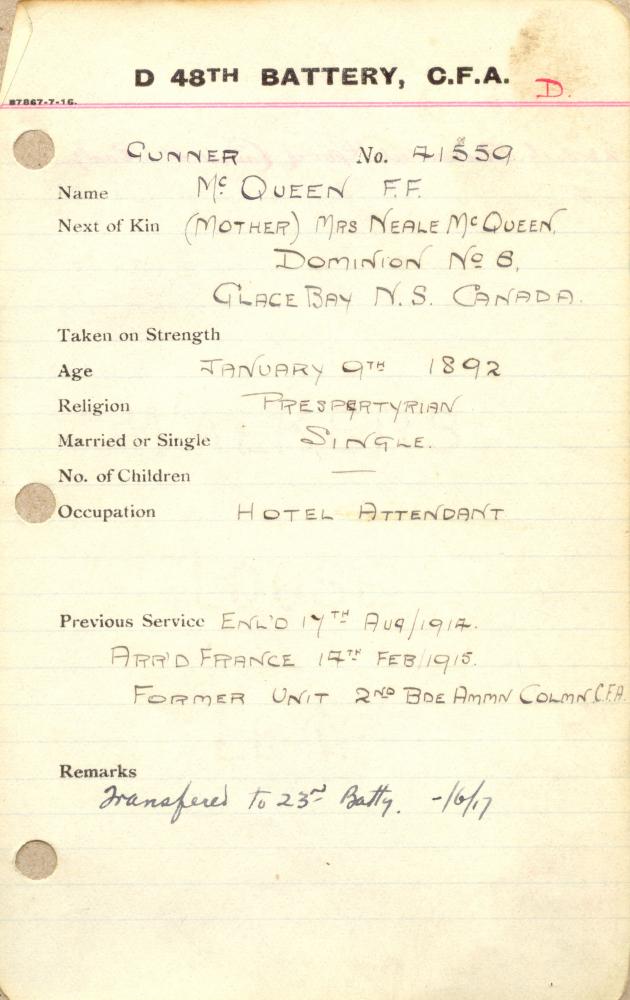 D 48TH BATTERY, C.F.A.
D.
87867-7-16.
GUNNER No. 41559
Name McQUEEN F.F.
Next of Kin (MOTHER) MRS NEALE McQUEEN,
DOMINION No 6,
GLACE BAY N.S. CANADA.
Taken on Strength
Age JANUARY 9TH 1892
Religion PRESPERTYRIAN
Married or Single SINGLE.
No. of Children —
Occupation HOTEL ATTENDANT
Previous Service ENL'D 17TH AUG/1914.
ARR'D FRANCE 14TH FEB/1915.
FORMER UNIT 2ND BDE AMMN COLMN C.F.A.
Remarks
Transfered to 23rd Batty. -/6/17